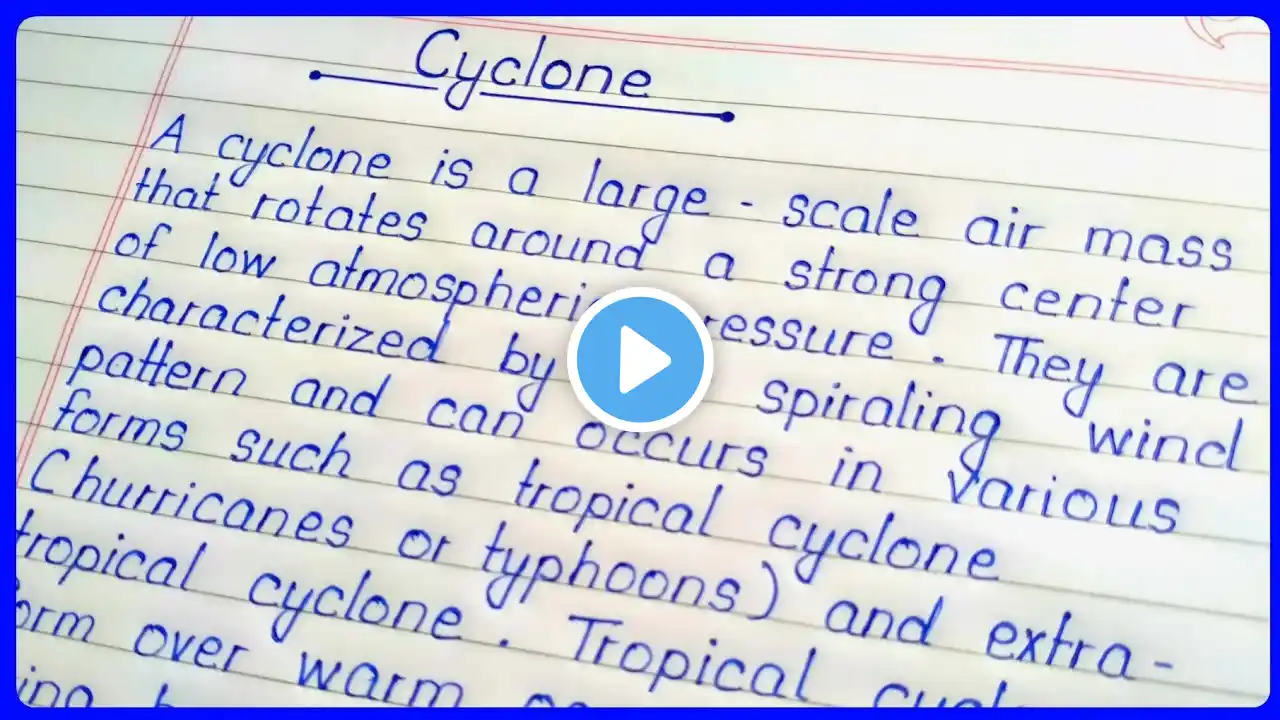 Cyclone
A cyclone is a large - scale air mass
that rotates around a strong center
of low atmospheric pressure. They are
characterized by spiraling wind
pattern and can occurs in various
forms such as tropical cyclone
(hurricanes or typhoons) and extra-
tropical cyclone. Tropical
form over warm